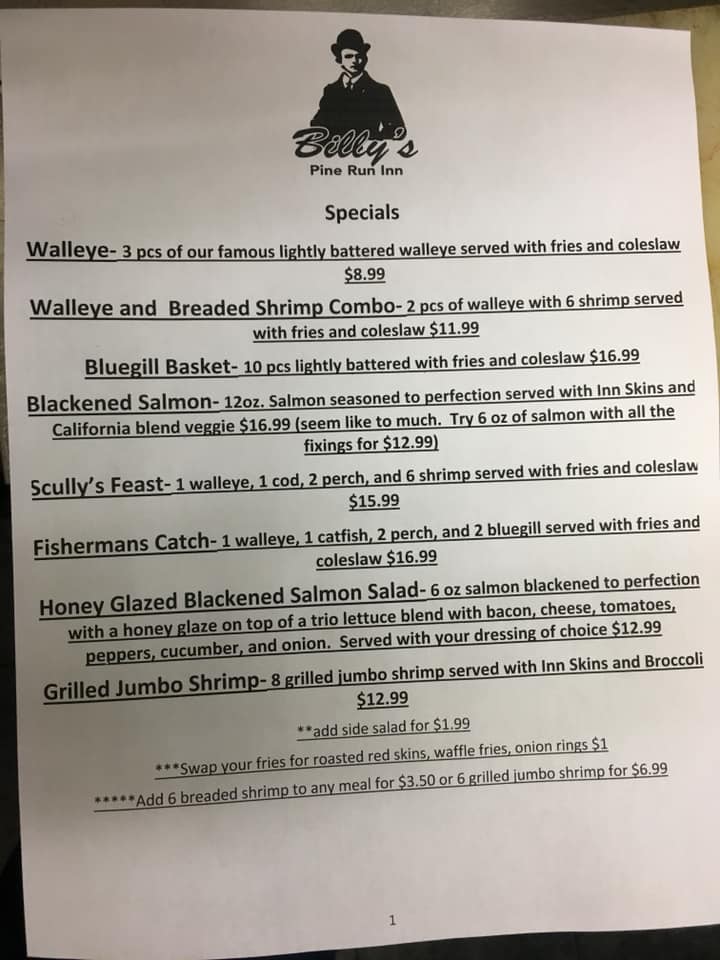 Billy's
Pine Run Inn
Specials
Walleye- 3 pcs of our famous lightly battered walleye served with fries and coleslaw
$8.99
Walleye and Breaded Shrimp Combo- 2 pcs of walleye with 6 shrimp served
with fries and coleslaw $11.99
Bluegill Basket- 10 pcs lightly battered with fries and coleslaw $16.99
Blackened Salmon- 12oz. Salmon seasoned to perfection served with Inn Skins and
California blend veggie $16.99 (seem like to much. Try 6 oz of salmon with all the
fixings for $12.99)
Scully's Feast- 1 walleye, 1 cod, 2 perch, and 6 shrimp served with fries and coleslaw
$15.99
Fishermans Catch- 1 walleye, 1 catfish, 2 perch, and 2 bluegill served with fries and
coleslaw $16.99
Honey Glazed Blackened Salmon Salad- 6 oz salmon blackened to perfection
with a honey glaze on top of a trio lettuce blend with bacon, cheese, tomatoes,
peppers, cucumber, and onion. Served with your dressing of choice $12.99
Grilled Jumbo Shrimp- 8 grilled jumbo shrimp served with Inn Skins and Broccoli
$12.99
**add side salad for $1.99
***Swap your fries for roasted red skins, waffle fries, onion rings $1
*****Add 6 breaded shrimp to any meal for $3.50 or 6 grilled jumbo shrimp for $6.99
1